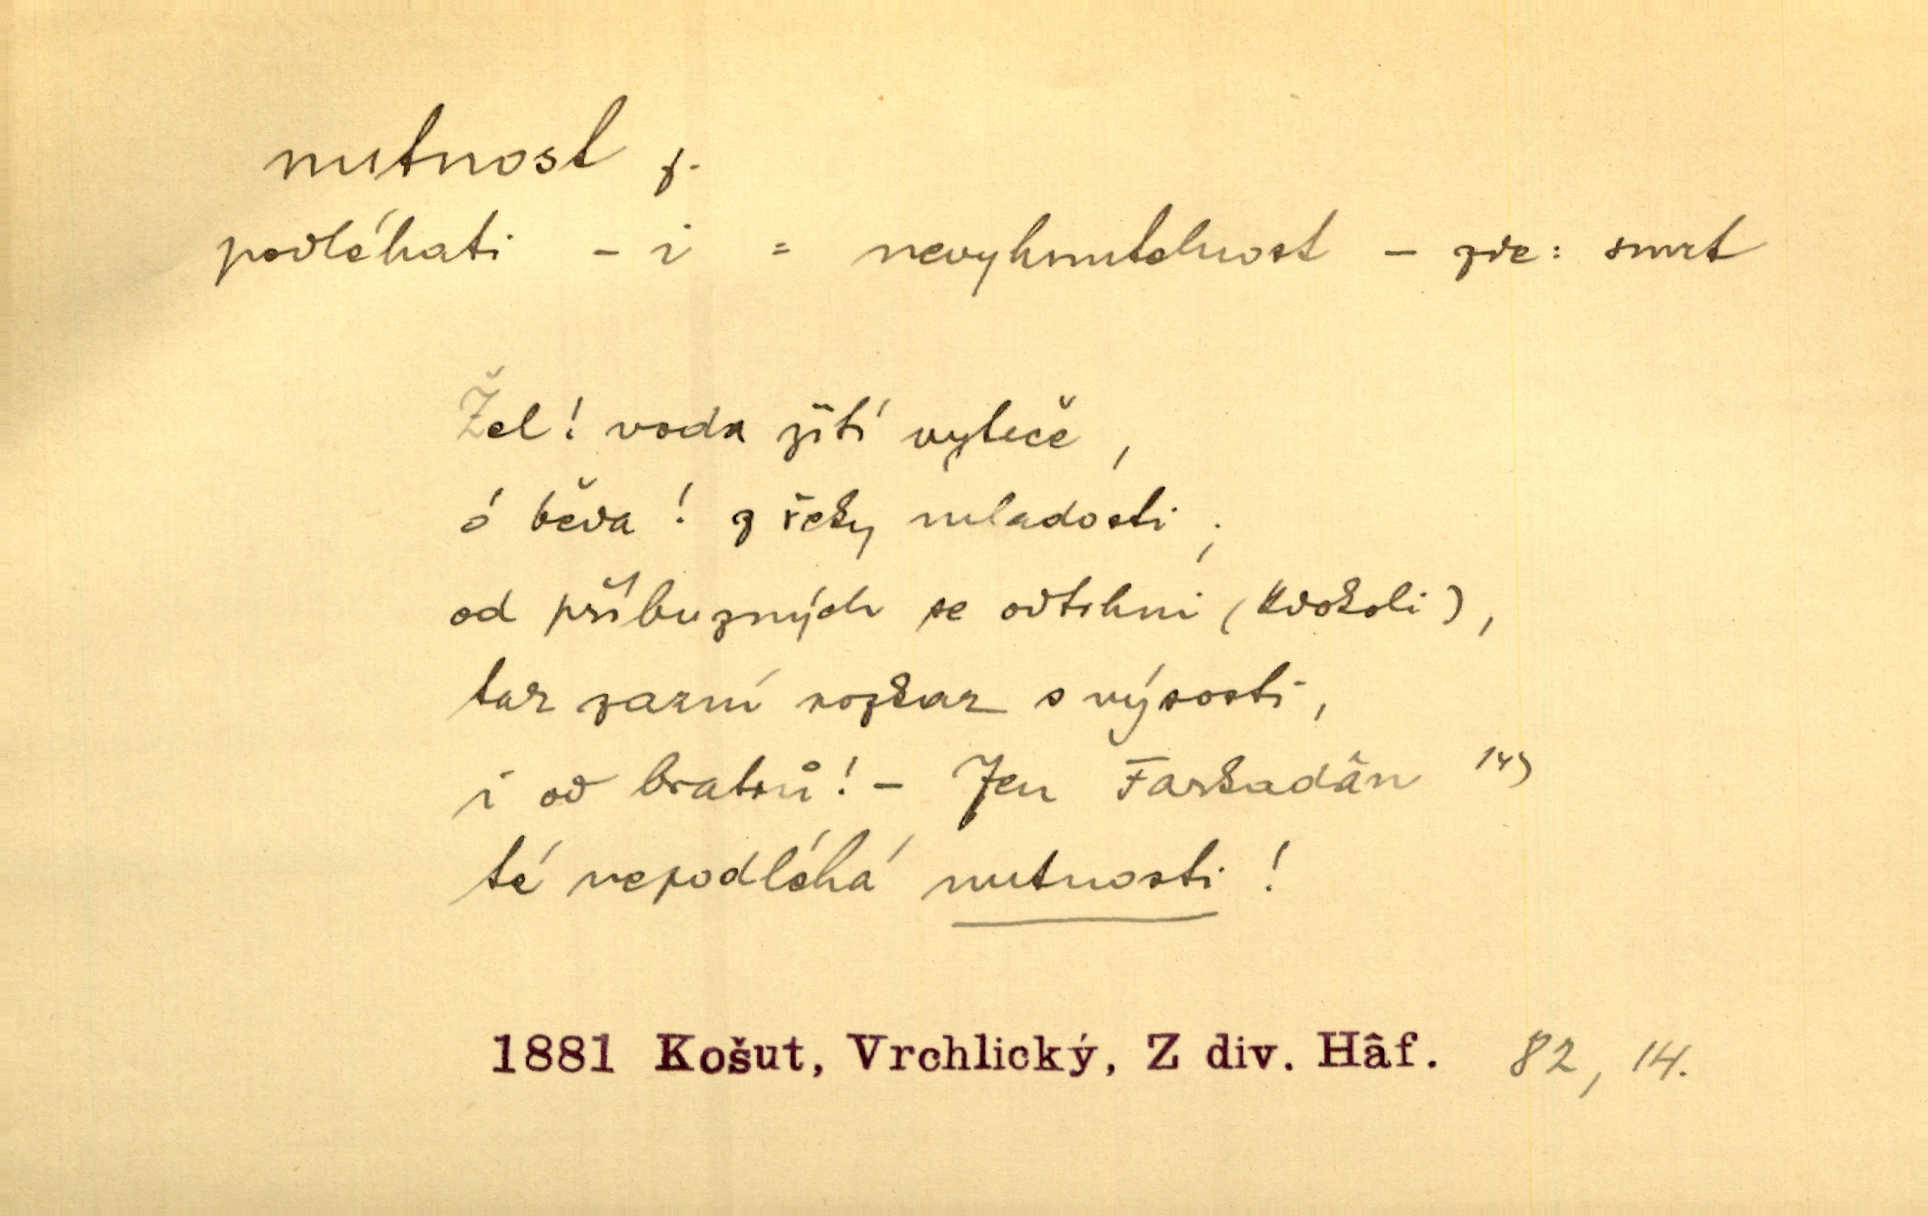 nutnost f.
podléhati - i = nevyhnutelnost - zde: smrt
Žel! voda žití vyteče,
ó běda! z řeky mladosti;
od příbuzných se odtrhni (kdokoli),
tak zazní rozkaz s výsosti,
i od bratrů! - Jen Farkadân 14)
té nepodléhá nutnosti!
1881 Košut, Vrchlický, Z div. Hâf. 82, 14.